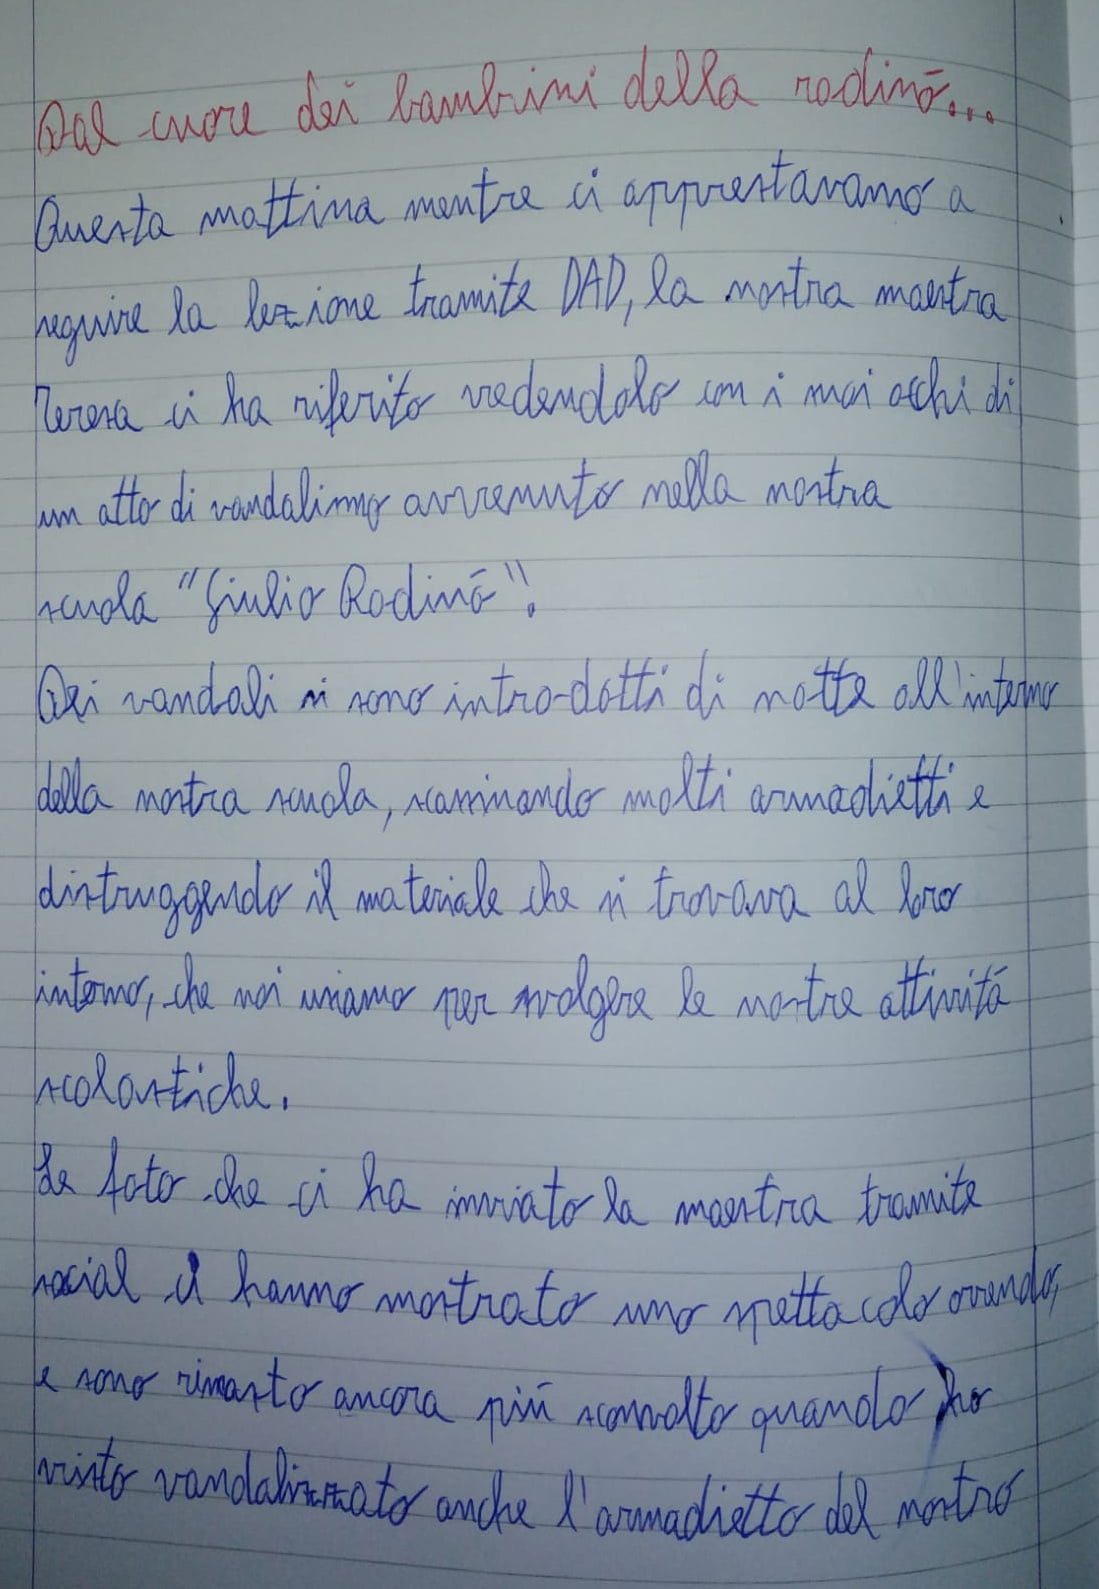 Dal cuore dei bambini della rodinō...
Questa mattina mentre ci apprestavamo a
seguire la lezione tramite DAD, la nostra maestra
Teresa ci ha riferito vedendolo con i suoi occhi di
un atto di vandalismo avvenuto nella nostra
scuola "Giulio Rodinō".
Dei vandali si sono introdotti di notte all'interno
della nostra scuola, scassinando molti armadietti e
distruggendo il materiale che si trovava al loro
interno, che noi usiamo per svolgere le nostre attività
scolastiche.
Le foto che ci ha inviato la maestra tramite
social ci hanno mostrato uno spettacolo orrendo,
e sono rimasto ancora più sconvolto quando ho
visto vandalizzato anche l'armadietto del nostro